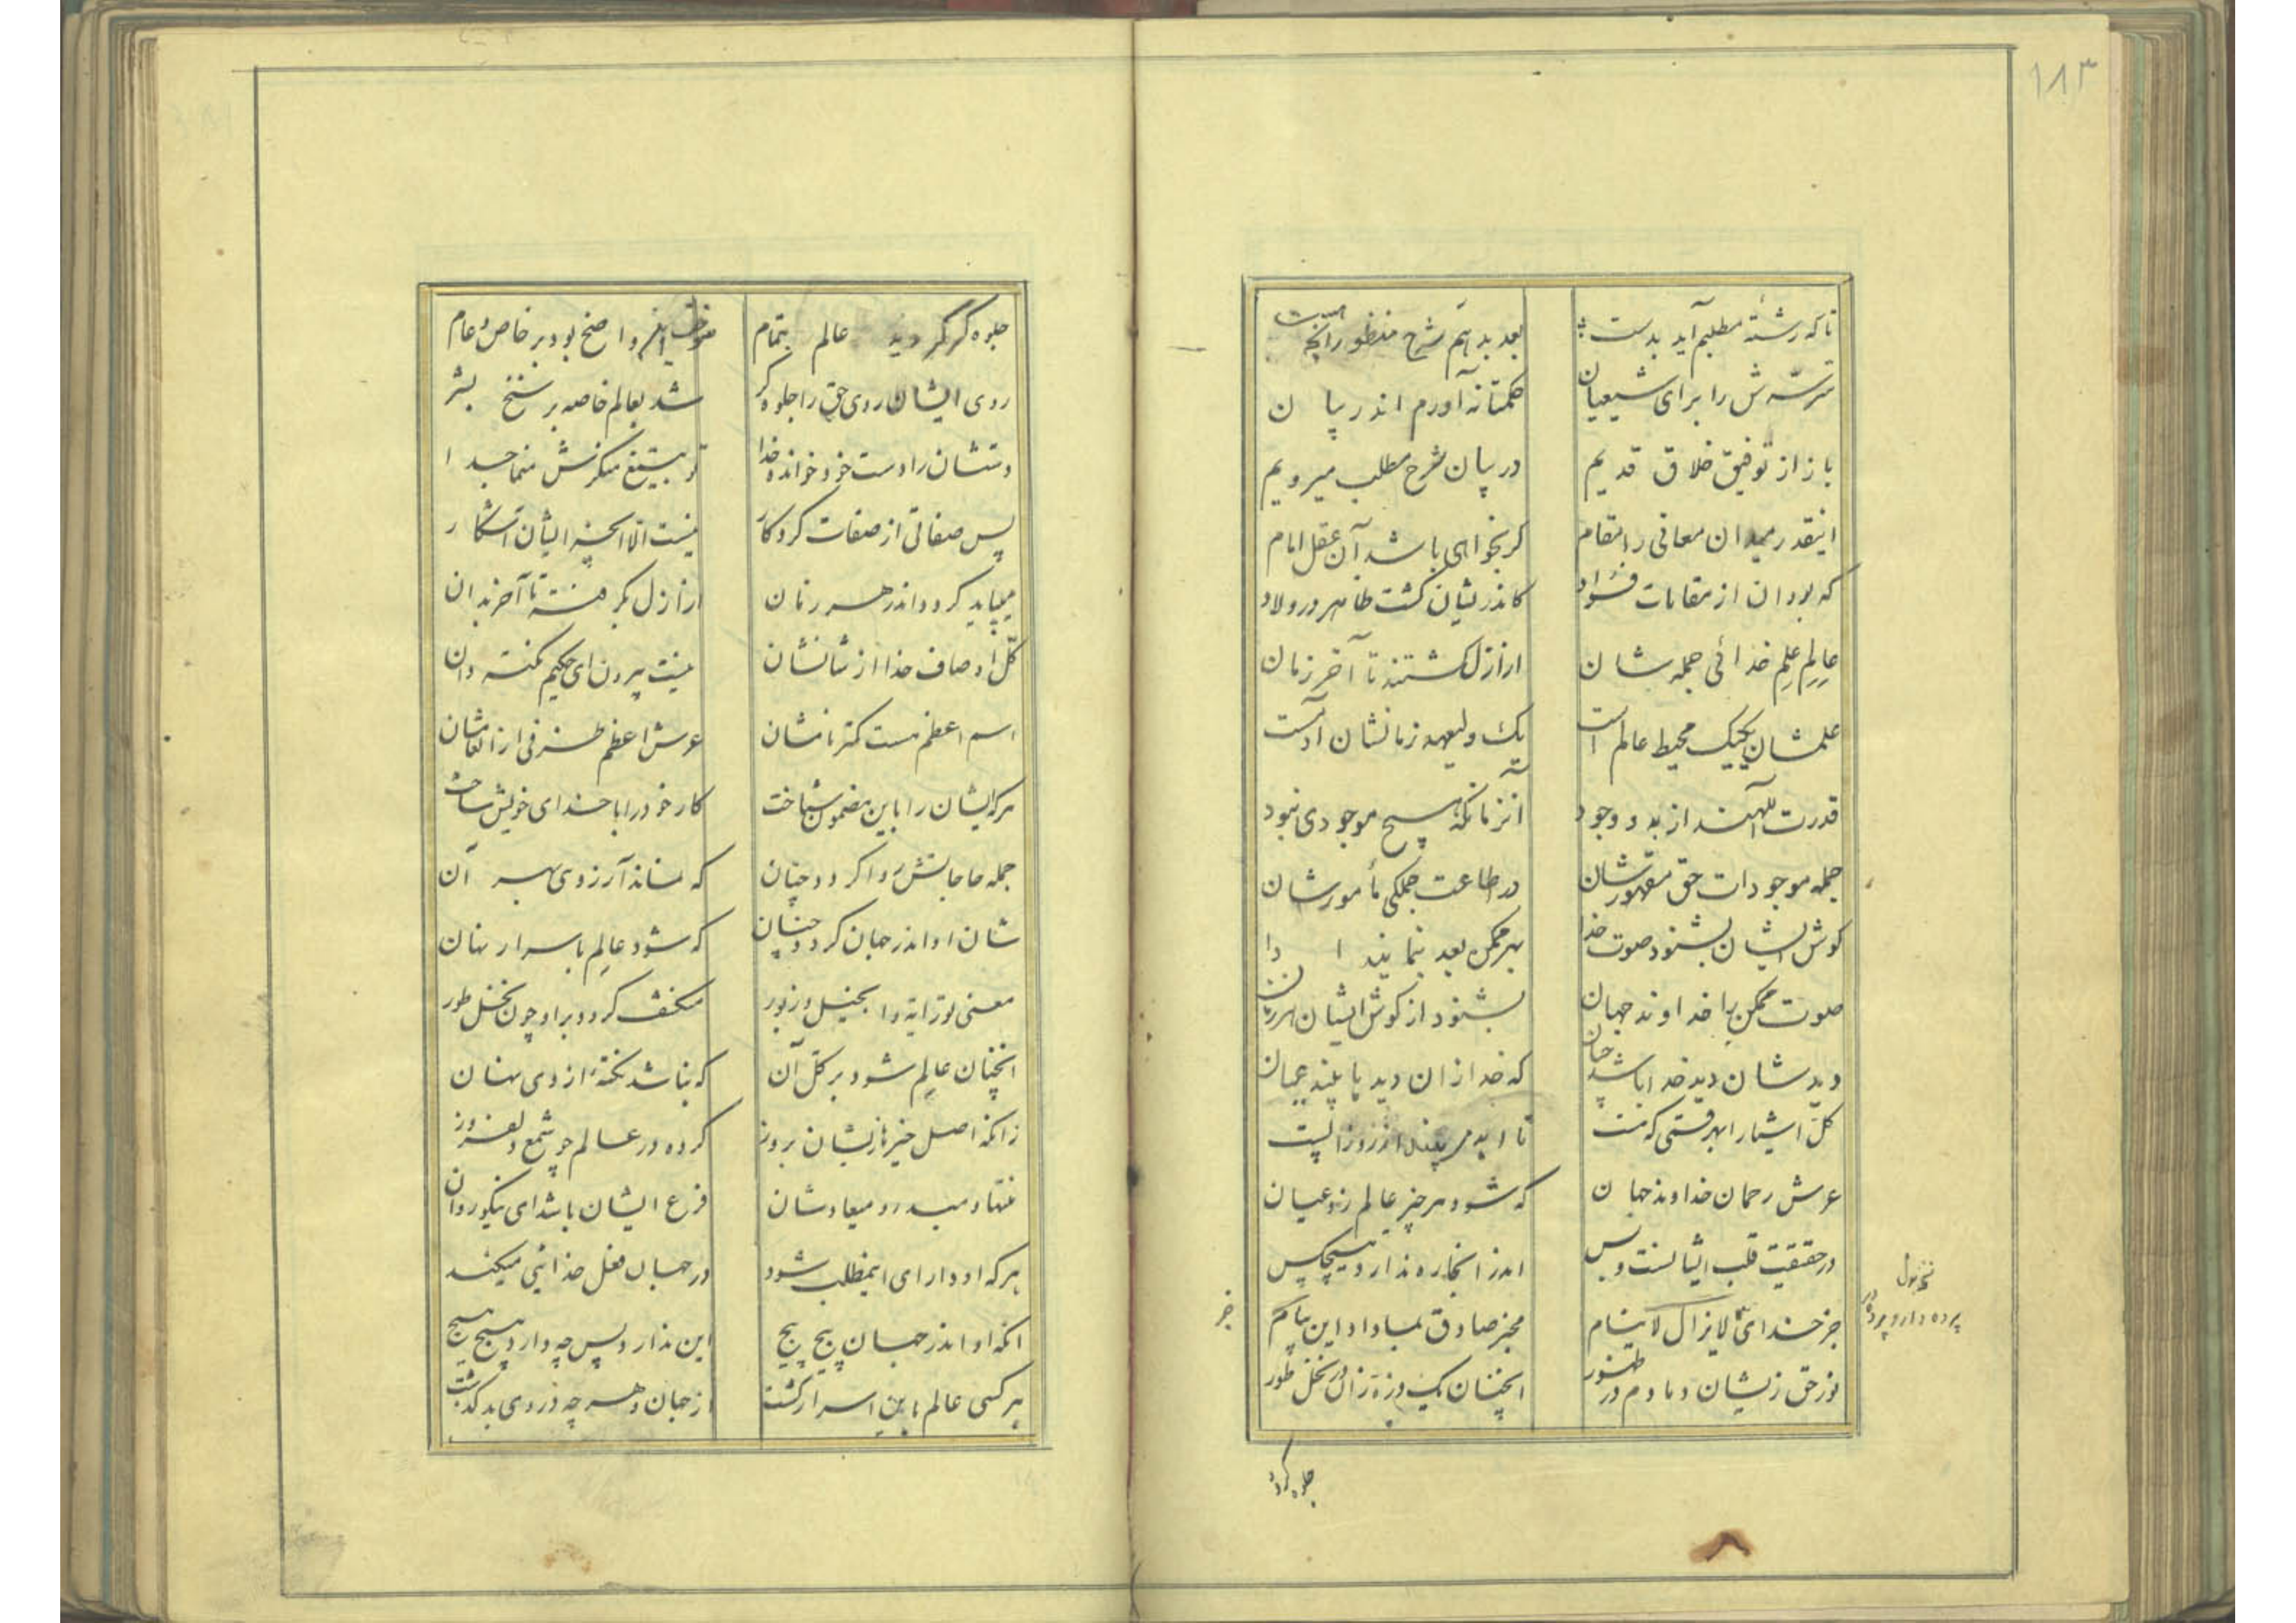 ۱۸۳
تا که رشته مطلبم آید بدست
بعد بدهم شرح منظور آنچه هست
سرّش را برای شیعیان
حکمتانه آورم اندر بیان
باز از توفیق خلاق قدیم
در بیان شرح مطلب میرویم
اینقدر میدان معانی را مقام
کر بخواهی باشد آن عقل امام
که بود ان از مقامات فؤاد
کاندریشان کشت ظاهر در ولاد
عالِم علِم خدائی جمله شان
از ازل کشتند تا آخر زمان
علمشان یکیک محیط عالم است
یک ولیعهد زمانشان آدمست
قدرت اللهند از بدو وجود
آنزمانکه هیچ موجودی نبود
جمله موجودات حق مقهورشان
در اطاعت جملکی مأمورشان
کوش ایشان بشنود صوت خدا
بهر ممکن بعد بنمایند ادا
صوت ممکن را خداوند جهان
بشنود از کوش ایشان هر زمان
دید شان دید خدا باشد
که خدا زان دید با بیند عیان
کلّ اشیا را بهر قسمی که هست
تا ابد بیند از روز الست
عرش رحمان خداوند جهان
که شود هر چیز عالم زو عیان
در حقیقت قلب ایشانست و بس
اندر انجا ره ندارد هیچکس
جز خدای لایزال لاینام
مخبر صادق بما داد این پیام
نور حق زیشان دمادم در ظهور
انچنان یک ذرّه زان در نخل طور
پرده دار و پرده در
جلوه کر کرد
جلوه کر کردید عالم بتمام
واضح بود بر خاص و عام
روی ایشان روی حق را جلوه کر
شد بعالم خاصه بر سنخ بشر
دستشان را دست خود خوانده خدا
پس صفاتی از صفات کردکار
نیست الّا بخیر ایشان آشکار
میباید کرد و اندر هر زمان
از ازل بکرفته تا آخر بدان
کلّ اوصاف خدا از شانشان
نیست بیرون ای حکیم نکته دان
اسم اعظم هست کمتر نامشان
عرش اعظم ظرفی از انعامشان
هر که ایشان را باین مضمون شناخت
کار خود را با خدای خویش ساخت
جمله حاجاتش روا کردد چنان
که نماند آرزوی بهر آن
شان او اندر جهان کردد چنان
که شود عالِم باسرار نهان
معنی توراتیه و انجیل و زبور
منکشف کردد بر او چون نخل طور
انچنان عالِم شود بر کلّ آن
که نباشد نکته از وی نهان
زانکه اصل خیر از یشان بروز
کرده در عالم چو شمع دلفروز
منتها و مبدء و میعادشان
فرع ایشان باشد ای نیکو روان
هر که او دارای اینمطلب شود
در جهان فعل خدائی میکند
انکه او اندر جهان پیچ پیچ
این ندارد پس چه دارد هیچ هیچ
هر کسی عالم باین اسرار کشت
از جهان و هر چه در وی بد کذشت